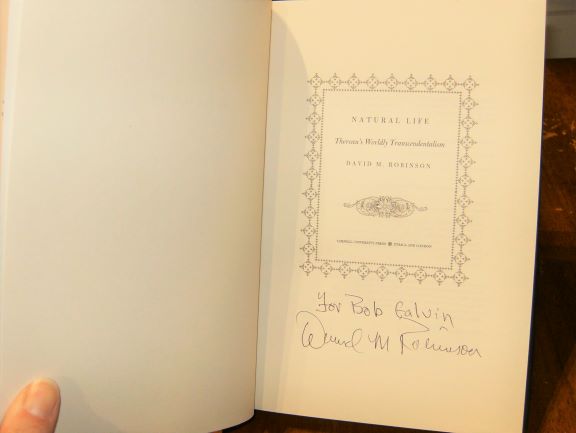 NATURAL LIFE
Thoreau's Worldly Transcendentalism
DAVID M. ROBINSON
CORNELL UNIVERSITY PRESS ITHACA AND LONDON
For Bob Galvin
David M Robinson